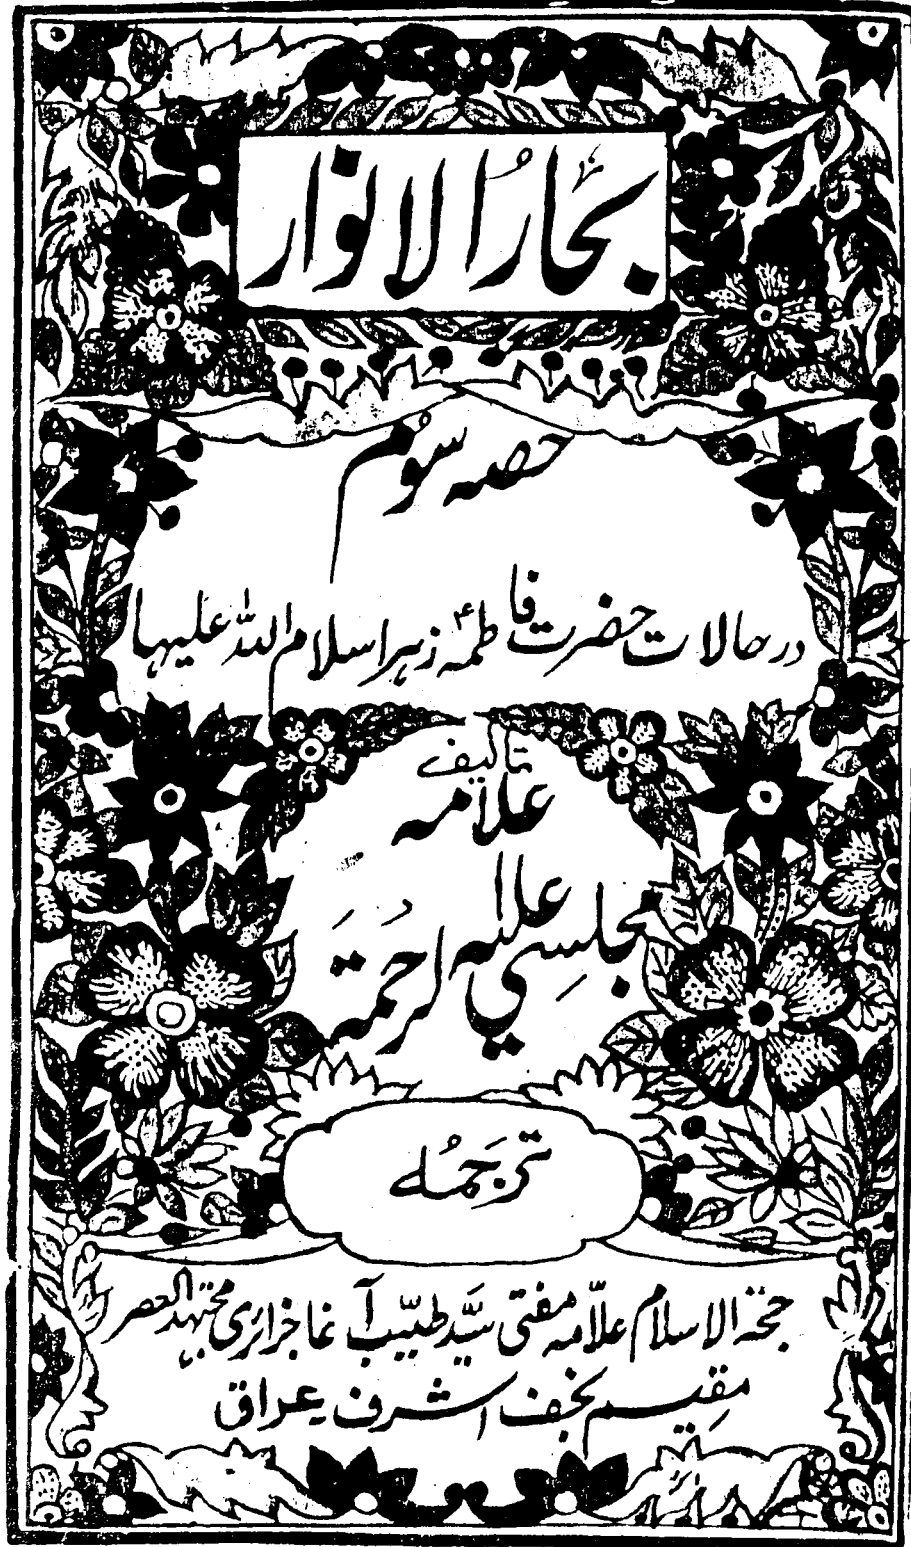 بحارُ الانوار
حصہ سوئم
در حالات حضرت فاطمہؑ زہرا سلام اللہ علیہا
تالیف
علامہ
مجلسِی علیہ الرحمَۃ
ترجَمُہ
حجۃ الاسلام علّامہ مفتی سیَّد طیّب آغا جزائری مجتہد العصر
مقیم نجف اشرف۔ عراق